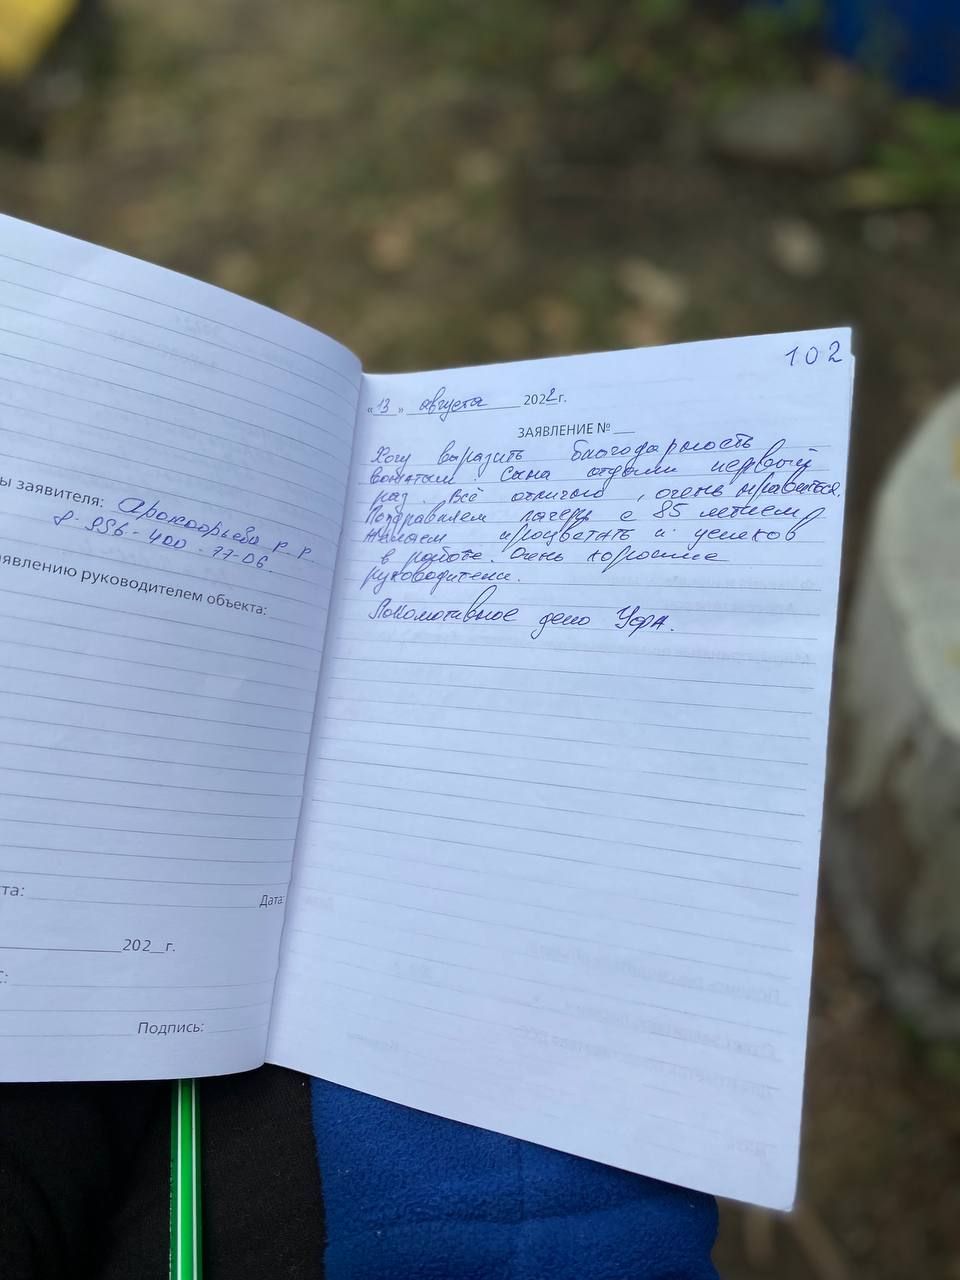 ы заявителя:
Р. Р.
8-956-400-77-06.
аявлению руководителем объекта:
та:
Дата:
202__г.
С:
Подпись:
102
«13» августа 2022г.
ЗАЯВЛЕНИЕ № __
Хочу выразить благодарность
вожатым. Сына отдали первый
раз. Всё отлично, очень нравиться.
Поздравляем лагерь с 85 летием
желаем процветать и успехов
в работе. Очень хорошие
руководители.
Локомотивное депо Уфа.